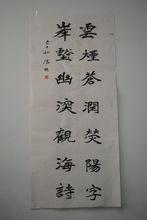 雲煙蒼潤熒陽字
峯壑幽深觀海詩